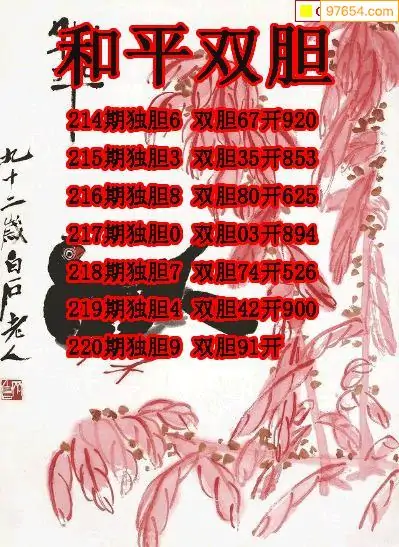 97654.com
和平双胆
214期独胆6 双胆67开920
215期独胆3 双胆35开853
216期独胆8 双胆80开625
217期独胆0 双胆03开894
218期独胆7 双胆74开526
219期独胆4 双胆42开900
220期独胆9 双胆91开
九十二歲白石老人